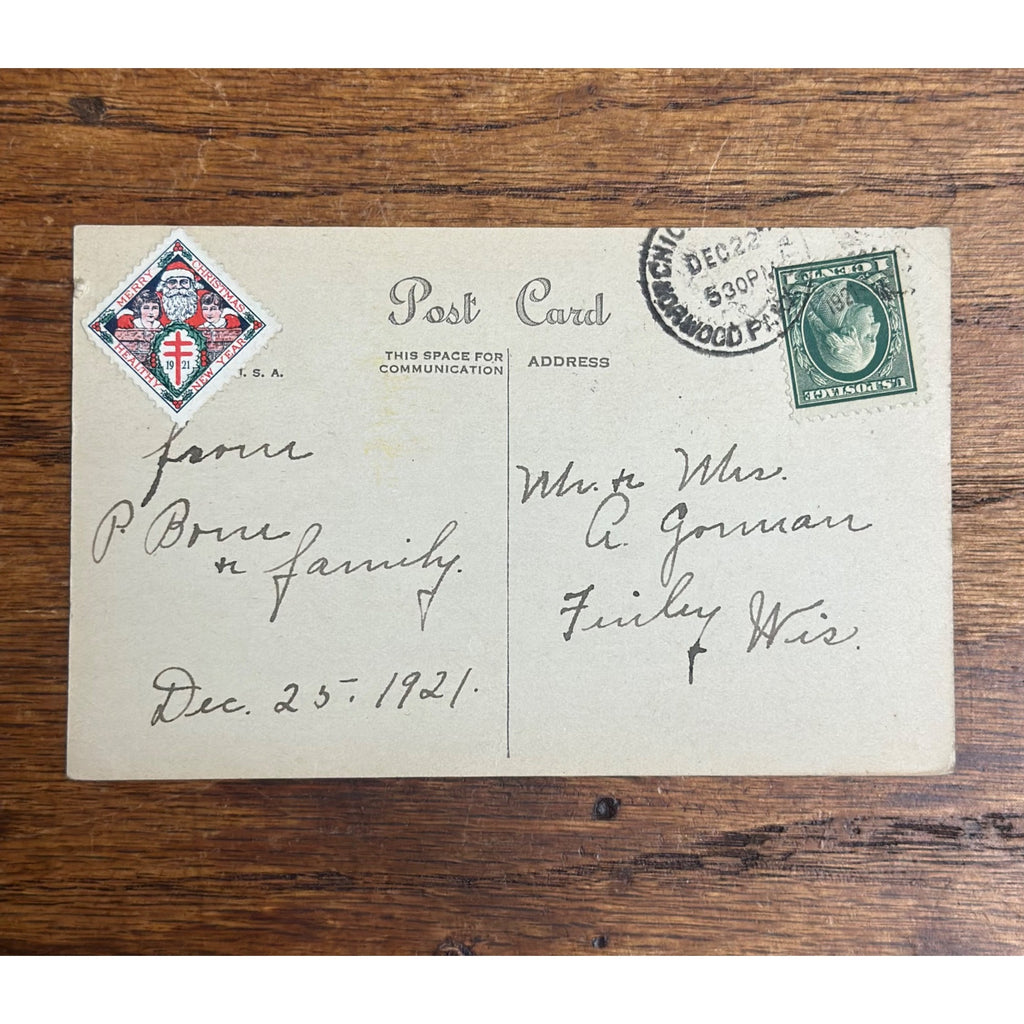 MERRY CHRISTMAS
HEALTHY NEW YEAR
19 21
. S. A.
Post Card
THIS SPACE FOR
COMMUNICATION
ADDRESS
CHIC
NORWOOD P
DEC 22
5 30 PM
192
U.S. POSTAGE
1
from
P. Born
& family.
Dec. 25. 1921.
Mr. & Mrs.
A. Gorman
Finley Wis.